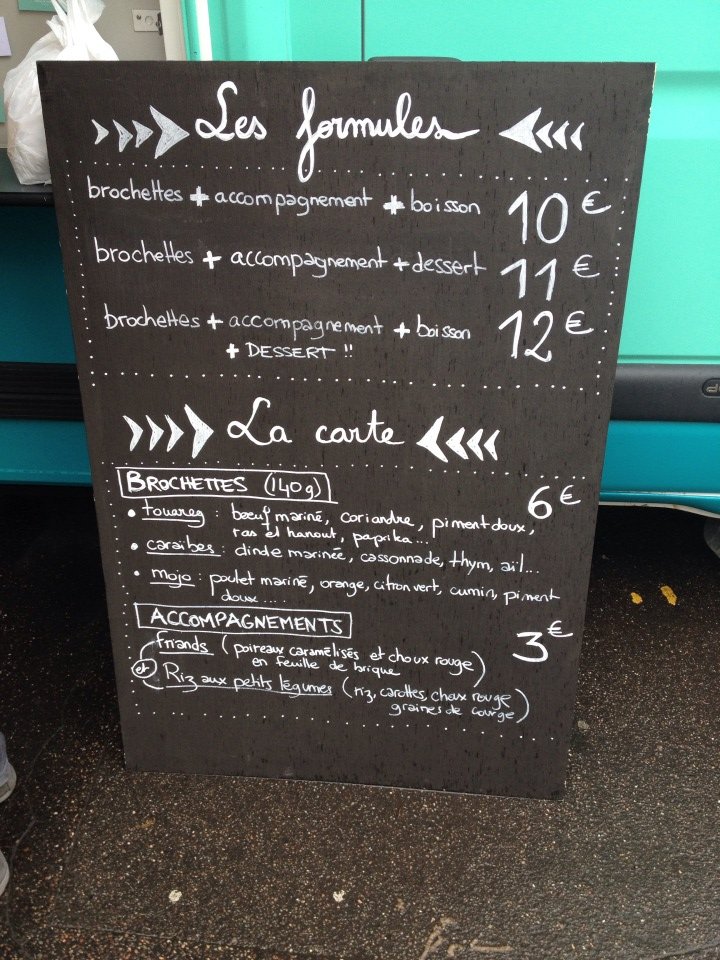 Les formules
brochettes + accompagnement + boisson 10€
brochettes + accompagnement + dessert 11€
brochettes + accompagnement + boisson 12€
+ DESSERT !!
La carte
BROCHETTES (140g) 6€
• touareg : bœuf mariné, coriandre, piment doux,
ras el hanout, paprika...
• caraïbes : dinde marinée, cassonnade, thym, ail...
• mojo : poulet mariné, orange, citron vert, cumin, piment
doux....
ACCOMPAGNEMENTS 3€
friands (poireaux caramélisés et choux rouge
en feuille de brique)
et
Riz aux petits légumes (riz, carottes, choux rouge
graines de courge)